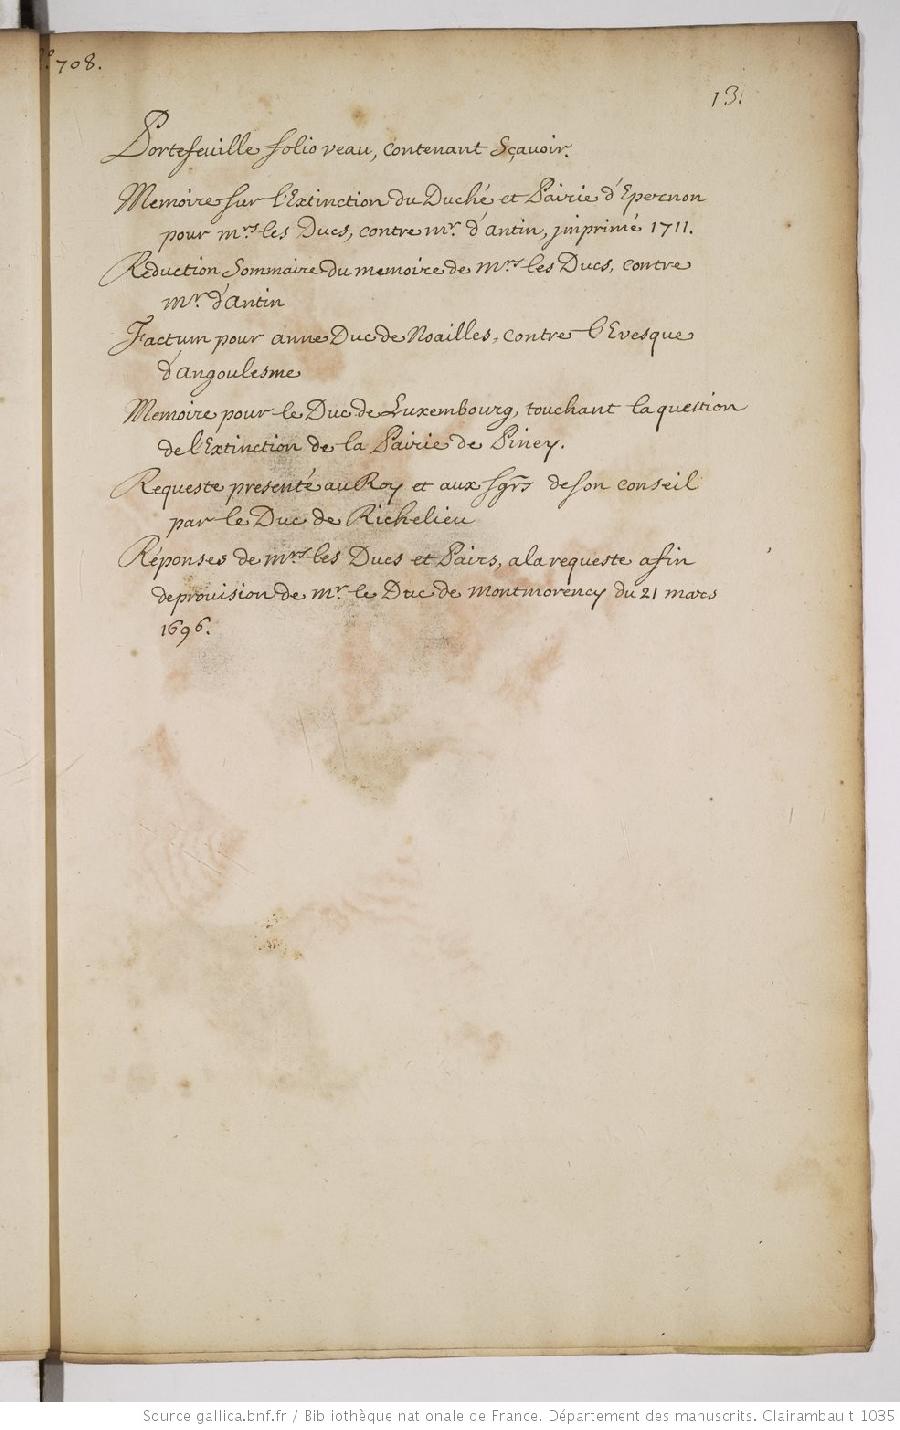 N.º 708.
13.
Portefeuille folio veau, contenant Sçavoir.
Memoire sur l'Extinction du Duché et Pairie d'Epernon
pour mrs. les Ducs, contre mr. d'antin, jmprimé 1711.
Reduction Sommaire du memoire de mrs. les Ducs, contre
mr. d'antin
Factum pour anne Duc de Noailles, contre l'Evesque
d'angoulesme
Memoire pour le Duc de Luxembourg, touchant la question
de l'Extinction de la Pairie de Piney.
Requeste presenté au Roy et aux sgrs de son conseil
par le Duc de Richelieu
Réponses de mrs. les Ducs et Pairs, a la requeste afin
de provision de mr. le Duc de montmorency du 21 mars
1696.
Source gallica.bnf.fr / Bibliothèque nationale de France. Département des manuscrits. Clairambault 1035